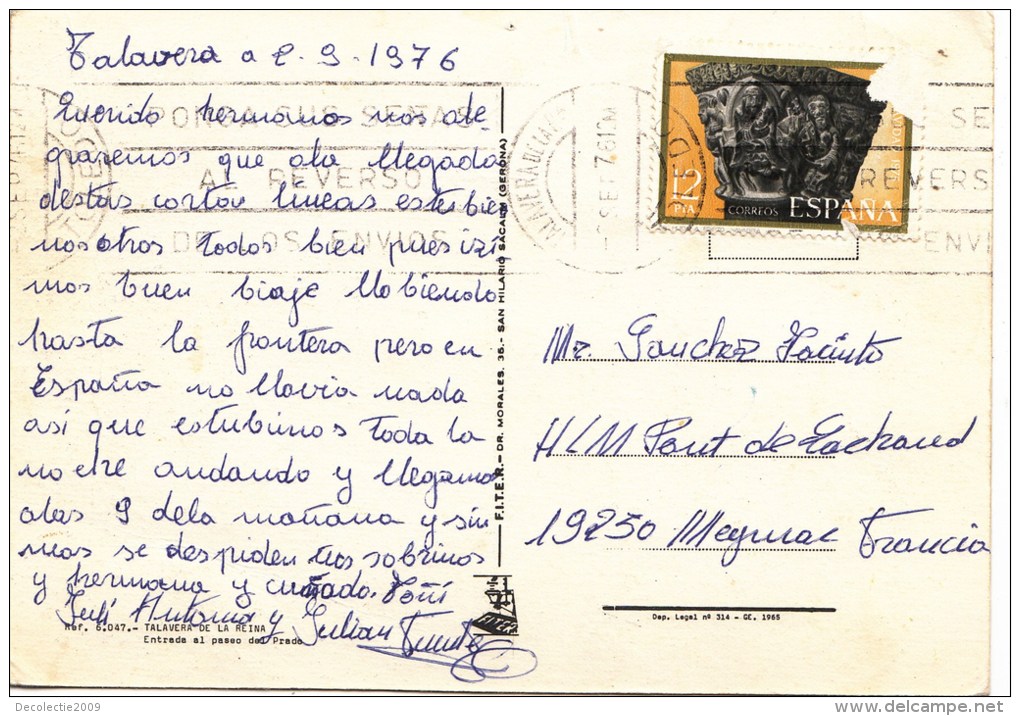 Talavera a 2-9-1976
Querido hermanos nos ale-
graremos que ala llegada
destas cortas lineas esteis bie
nosotros todos bien pues izi
mos buen biaje llobiendo
hasta la frontera pero en
España no llovia nada
así que estubimos toda la
noche andando y llegamos
alas 9 dela mañana y sin
mas se despiden tus sobrinos
y hermana y cuñado. Toñi
Juli Antonia y Julian
Ref. 6.047.- TALAVERA DE LA REINA
Entrada al paseo del Prado
F.I.T.E.R.- DR. MORALES, 36.- SAN HILARIO SACALM (GERONA)
PONGA SUS SEÑAS
AL REVERSO
DE LOS ENVIOS
TALAVERA DE LA
SEP 76
TOLEDO
12
PTA
CORREOS ESPAÑA
Mr. Sanchez Jacinto
HLM Pont de Lachaud
19250 Meymac Francia
Dep. Legal nº 314 - GE. 1965
Decolectie2009